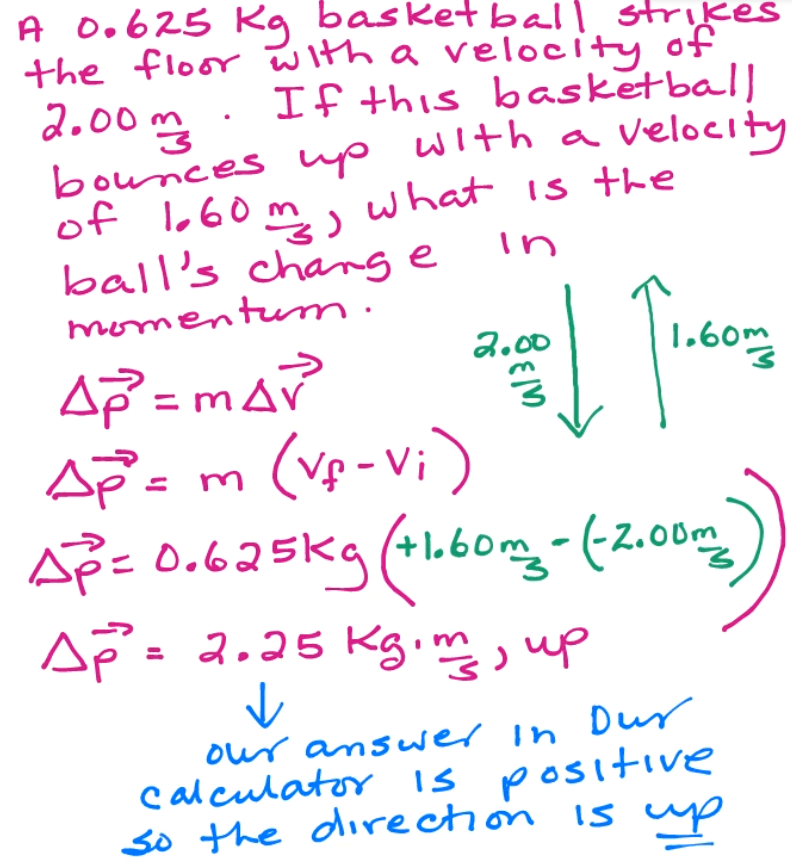 A 0.625 Kg basketball strikes
the floor with a velocity of
2.00 m/s. If this basketball
bounces up with a velocity
of 1.60 m/s, what is the
ball's change in
momentum.
2.00 m/s
1.60 m/s
Δp⃗ = mΔv⃗
Δp⃗ = m (vf - vi)
Δp⃗ = 0.625Kg (+1.60 m/s - (-2.00 m/s))
Δp⃗ = 2.25 Kg·m/s, up
↓
our answer in our
calculator is positive
so the direction is up